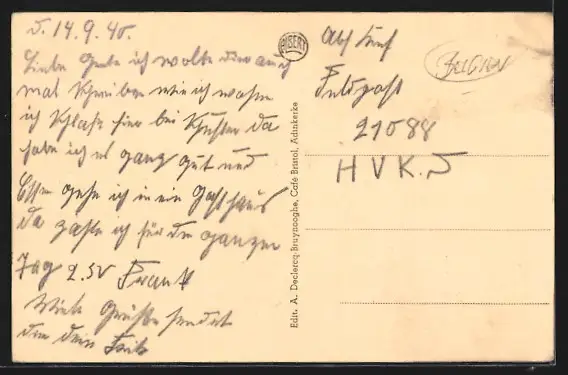 d. 14.9.40.
Liebe Grete ich wollte dir auch
mal schreiben wie ich wohne
ich schlafe hier bei Schuster da
habe ich es ganz gut und
Essen gehe ich in ein Gasthaus
da zahle ich für den ganzen
Tag 2.50 Frank
Viele Grüße sendet
dir dein Fritz
ALBERT
Edit. A. Declercq-Bruynooghe, Café Bristol, Adinkerke
Feldpost
21088
H V K.
BELGIEN